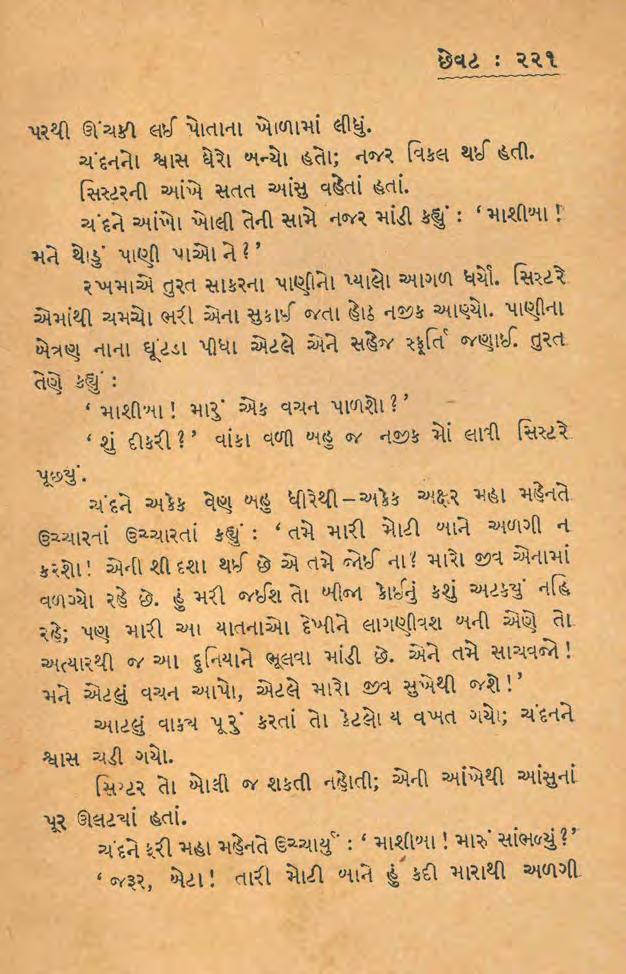 છેવટ : ૨૨૧
પરથી ઊંચકી લઈ પોતાના ખોળામાં લીધું.
ચંદનનો શ્વાસ ઘેરો બન્યો હતો; નજર વિકલ થઈ હતી.
સિસ્ટરની આંખે સતત આંસુ વહેતાં હતાં.
ચંદને આંખો ખોલી તેની સામે નજર માંડી કહ્યું : ‘માશીબા !
મને થોડું પાણી પાઓ ને ?’
રખમાએ તુરત સાકરના પાણીનો પ્યાલો આગળ ધર્યો. સિસ્ટરે
એમાંથી ચમચો ભરી એના સુકાઈ જતા હોઠ નજીક આણ્યો. પાણીના
બેત્રણ નાના ઘૂંટડા પીધા એટલે એને સહેજ સ્ફૂર્તિ જણાઈ. તુરત
તેણે કહ્યું :
‘માશીબા ! મારું એક વચન પાળશો ?’
‘શું દીકરી ?’ વાંકા વળી બહુ જ નજીક મોં લાવી સિસ્ટરે
પૂછ્યું.
ચંદને અકેક વેણ બહુ ધીરેથી – અકેક અક્ષર મહા મહેનતે
ઉચ્ચારતાં ઉચ્ચારતાં કહ્યું : ‘તમે મારી મોટી બાને અળગી ન
કરશો ! એની શી દશા થઈ છે એ તમે જોઈ ના ? મારો જીવ એનામાં
વળગ્યો રહે છે. હું મરી જઈશ તો બીજા કોઈનું કશું અટક્યું નહિ
રહે; પણ મારી આ યાતનાઓ દેખીને લાગણીવશ બની એણે તો
અત્યારથી જ આ દુનિયાને ભૂલવા માંડી છે. એને તમે સાચવજો !
મને એટલું વચન આપો, એટલે મારો જીવ સુખેથી જશે !’
આટલું વાક્ય પૂરું કરતાં તો કેટલો ય વખત ગયો; ચંદનને
શ્વાસ ચડી ગયો.
સિસ્ટર તો બોલી જ શકતી નહોતી; એની આંખેથી આંસુનાં
પૂર ઊલટ્યાં હતાં.
ચંદને ફરી મહા મહેનતે ઉચ્ચાર્યું : ‘માશીબા ! મારું સાંભળ્યું ?’
‘જરૂર, બેટા ! તારી મોટી બાને હું કદી મારાથી અળગી